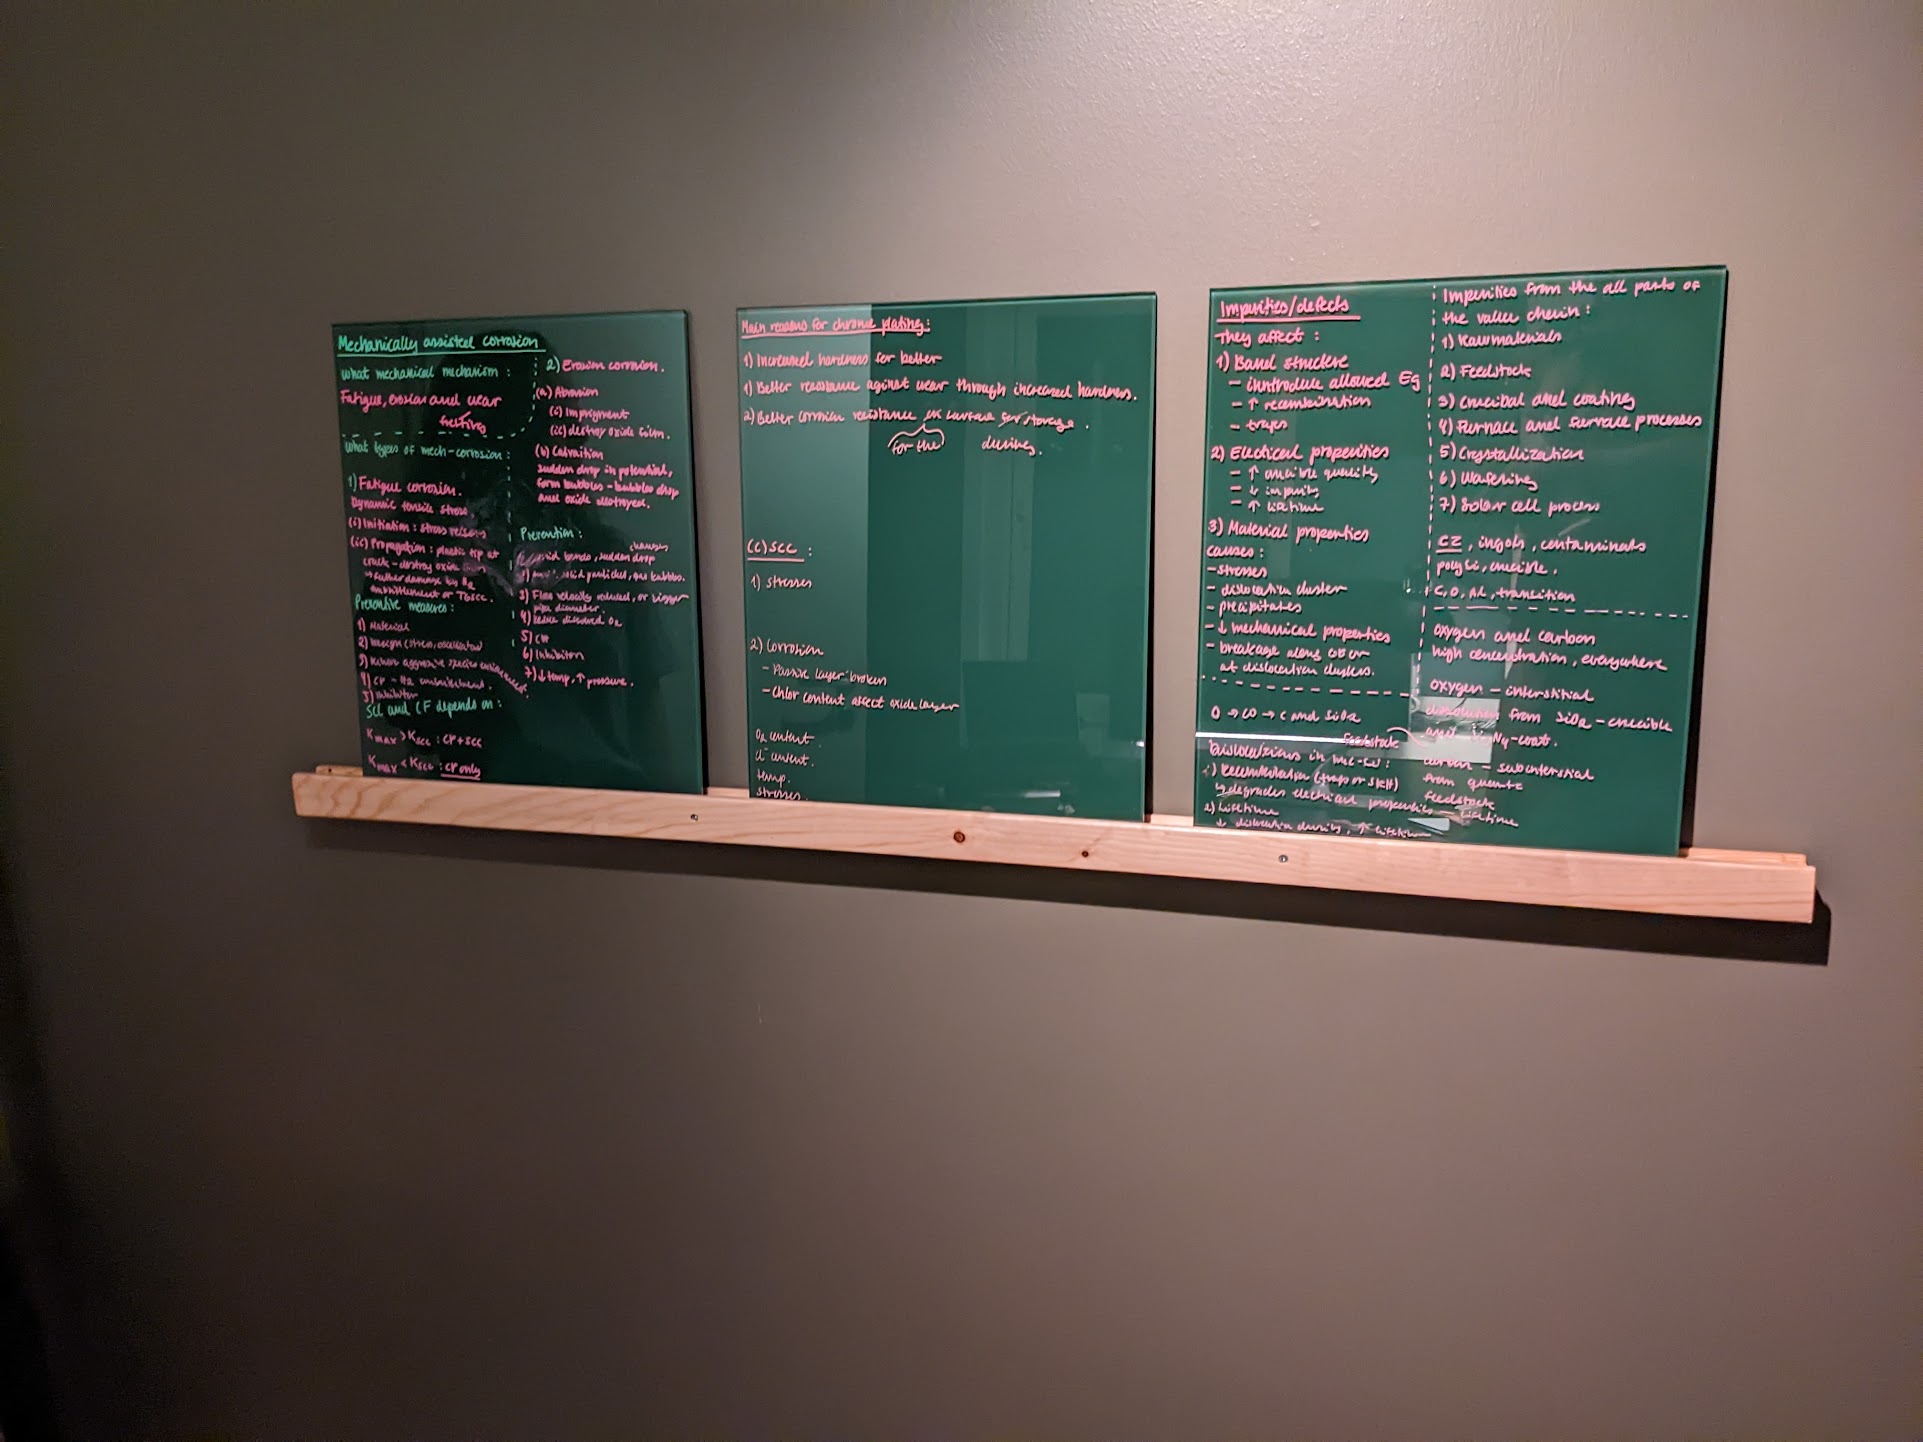 Mechanically assisted corrosion
what mechanical mechanism :
Fatigue, erosion and wear
fretting
what types of mech-corrosion :
1) Fatigue corrosion.
Dynamic tensile stress.
(i) Initiation : stress
(ii) Propagation : plastic tip at
crack - destroy oxide
further damage by H2
embrittlement or TGSCC.
Preventive measures :
1) Material
2) Design (stress,
3) Reduce aggressive species
4) CP - H2 embrittlement.
5) Inhibitor
SCC and CF depends on :
Kmax > Kscc : CF + SCC
Kmax < Kscc : CF only
2) Erosion corrosion.
(a) Abrasion
(i) Impingment
(ii) destroy oxide film.
(b) Cavitation
sudden drop in potential,
form bubbles - bubbles drop
and oxide destroyed.
Prevention :
changes
bends, sudden drop
solid particles, gas bubbles.
3) Flow velocity reduced, or bigger
pipe diameter.
4) Reduce dissolved O2
5)
6) Inhibitor
7) ↓ temp, ↑ pressure.
Main reasons for chrome plating :
1) Increased hardness for better
1) Better resistance aginst wear through increased hardness.
2) Better corrosion resistance for storage.
for the
(C) SCC :
1) stresses
2) Corrosion
- Passive layer broken
- Chlor content affect oxide layer
O2 content.
Cl- content.
temp.
stresses.
Impurities/defects
They affect :
1) Band structure
- introduce allowed Eg
- ↑ recombination
- traps
2) Electrical properities
- ↑ crucible quality
- ↓ impurity
- ↑ lifetime
3) Material properties
causes :
- stresses
- dislocation cluster
- precipitates
- ↓ mechanical properties
- breakage along GB or
at dislocation clusters.
O → CO → C and SiO2
Dislocations in mc-Si :
1) Recombination (traps or SRH)
↳ degrades electrical properties - lifetime
2) Lifetime
↓ dislocation density, ↑ lifetime
Impurities from the all parts of
the value chain :
1) Raw materials
2) Feedstock
3) Crucibal and coating
4) Furnace and furnace processes
5) Crystallization
6) Wafering
7) Solar cell process
CZ, ingots, contaminats
poly Si, crucible.
C, O, Al, transition
oxygen and carbon
high concentration, everywhere
oxygen - interstitial
dissolution from SiO2 - crucible
and -coat.
Feedstock
carbon - subinterstial
from quartz
feedstock